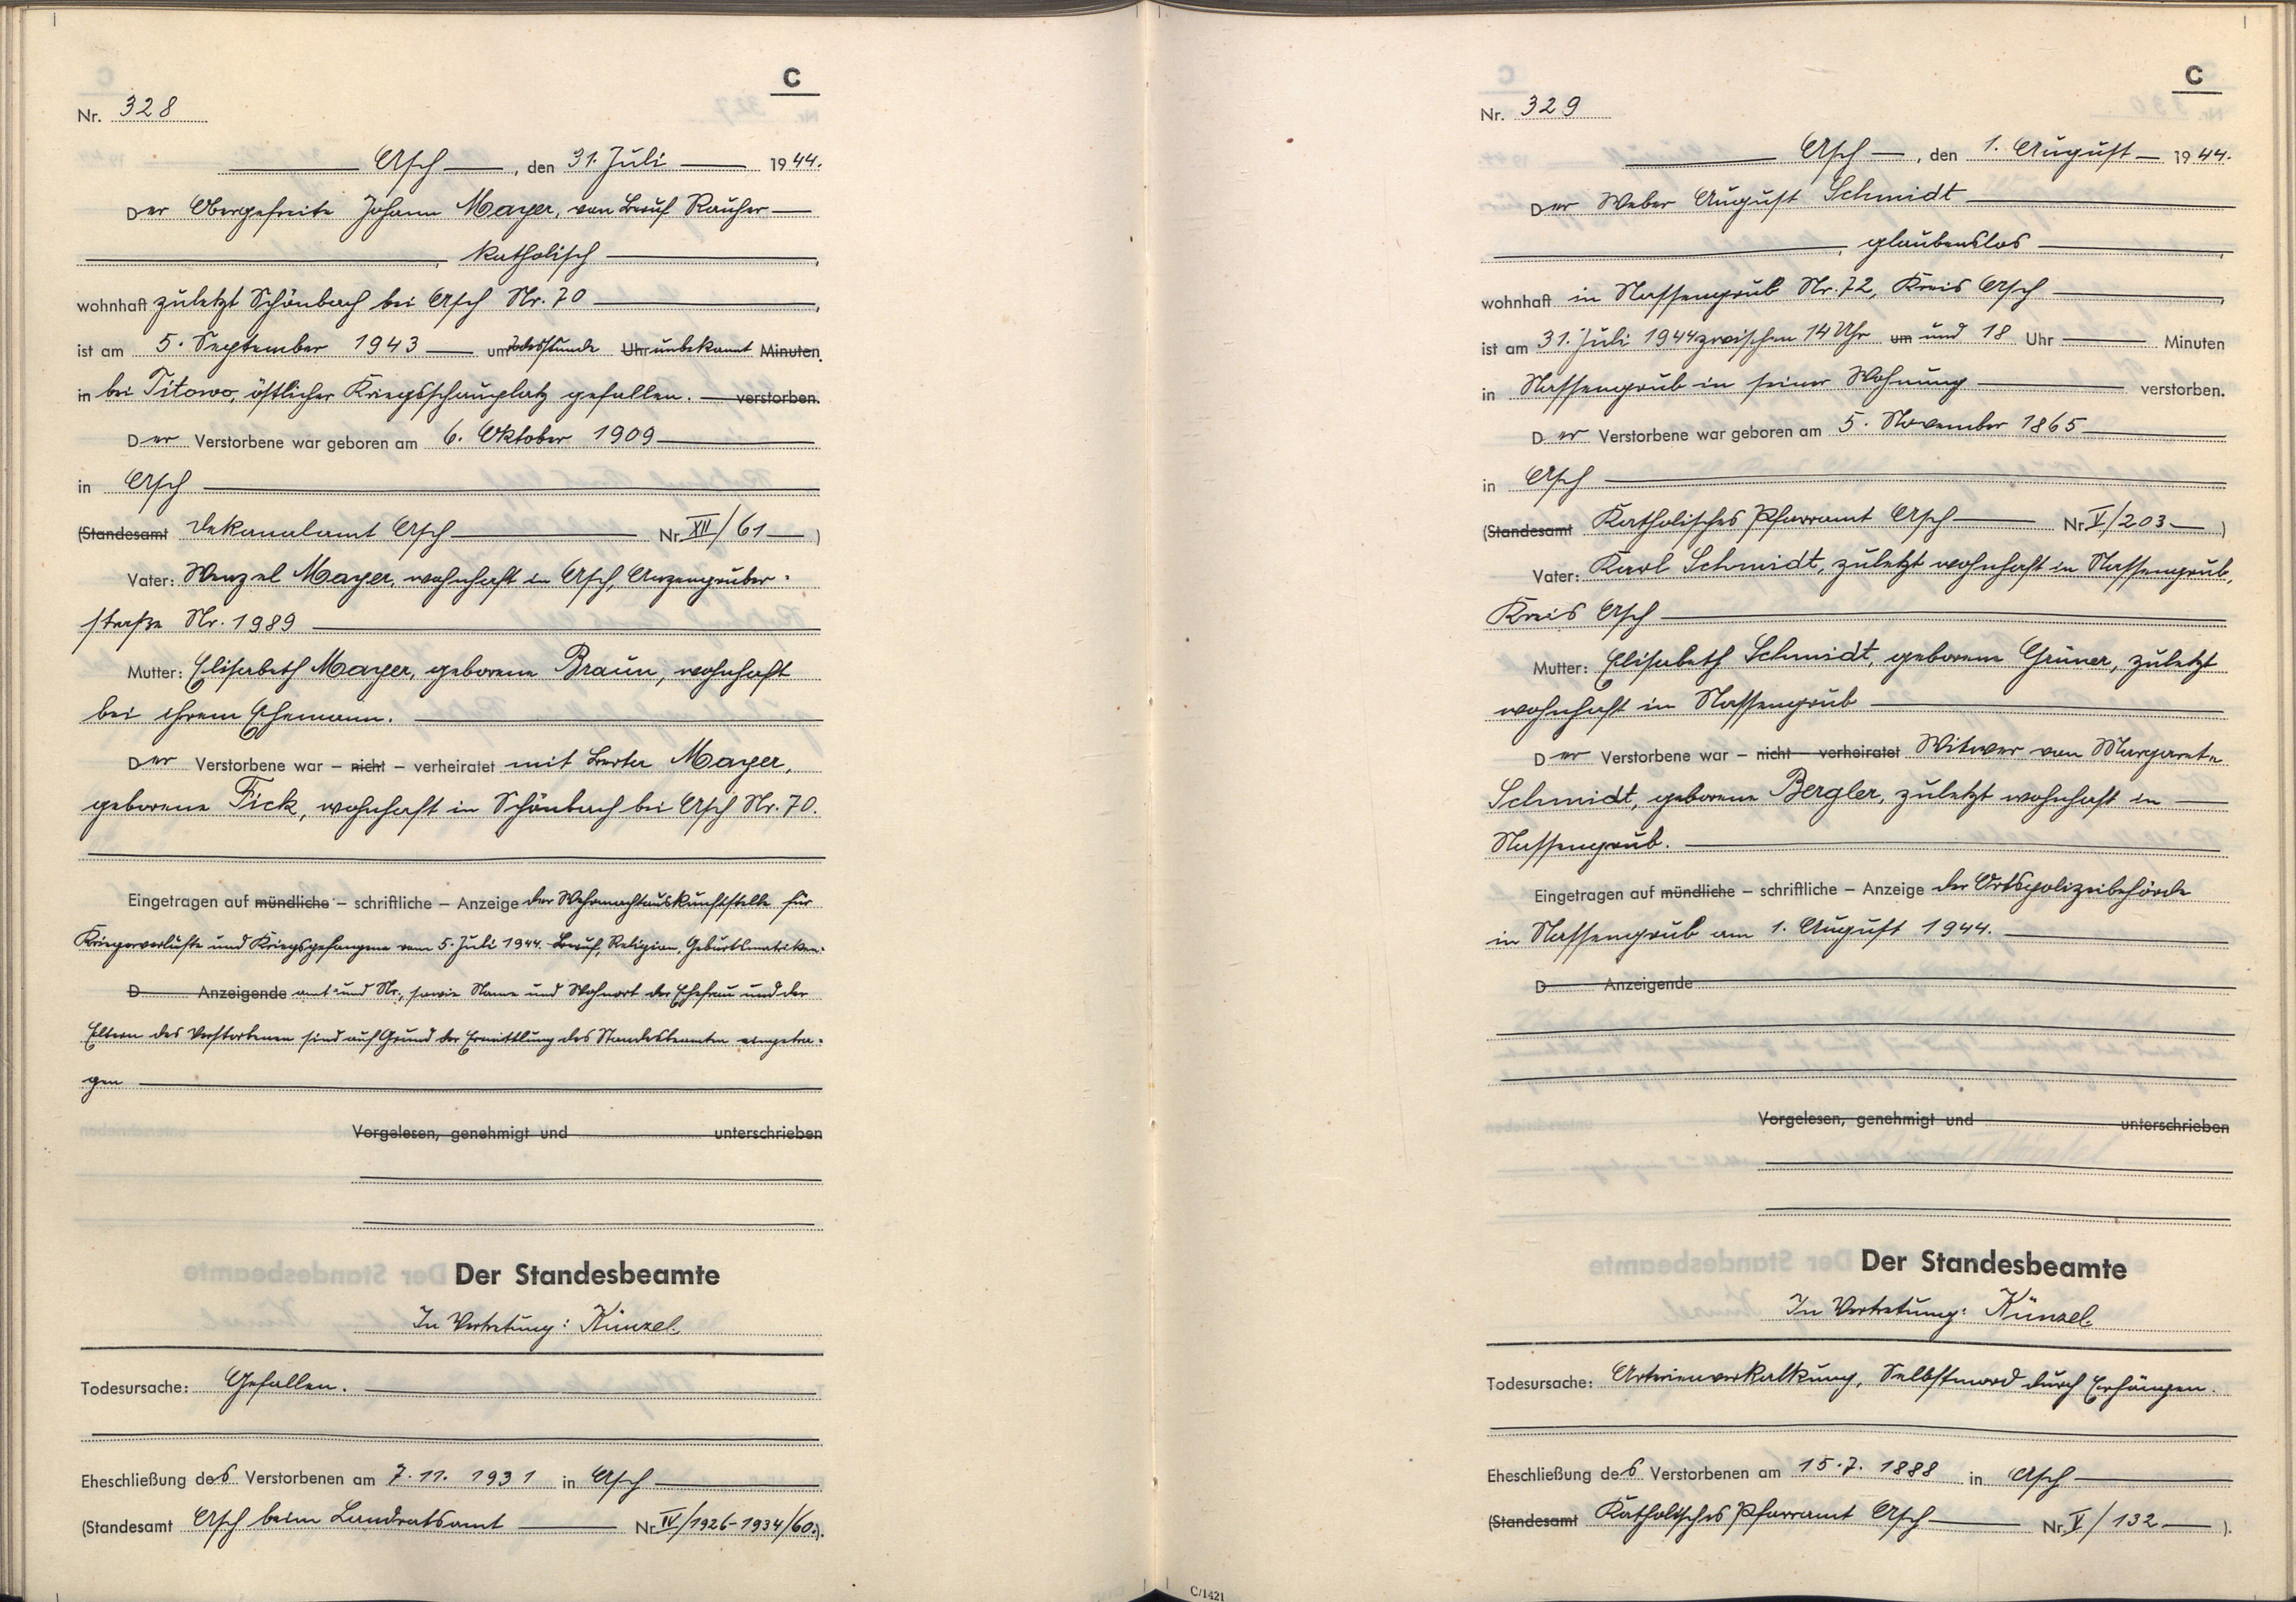 C
Nr. 328
Asch, den 31. Juli 1944.
Der Obergefreite Johann Mayer, von Beruf Rauher
, katholisch,
wohnhaft zuletzt Schönbach bei Asch Nr. 70,
ist am 5. September 1943 um Todesstunde Uhr unbekannt Minuten.
in bei Titowo, östlicher Kriegsschauplatz gefallen. verstorben.
Der Verstorbene war geboren am 6. Oktober 1909
in Asch
(Standesamt Dekanalamt Asch Nr. XII/61)
Vater: Wenzel Mayer, wohnhaft in Asch, Anzengruber-
straße Nr. 1989
Mutter: Elisabeth Mayer, geborene Braun, wohnhaft
bei ihrem Ehemann.
Der Verstorbene war – nicht – verheiratet mit Berta Mayer,
geborene Fick, wohnhaft in Schönbach bei Asch Nr. 70.
Eingetragen auf mündliche – schriftliche – Anzeige der Wehrmachtauskunftstelle für
Kriegerverluste und Kriegsgefangene vom 5. Juli 1944. Beruf, Religion, Geburtsmatriken-
D Anzeigende amt und Nr., sowie Name und Wohnort der Ehefrau und der
Eltern des Verstorbenen sind auf Grund der Ermittlung des Standesbeamten eingetra-
gen
Vorgelesen, genehmigt und unterschrieben
Der Standesbeamte
In Vertretung: Künzel.
Todesursache: Gefallen.
Eheschließung des Verstorbenen am 7. 11. 1931 in Asch
(Standesamt Asch beim Landratsamt Nr. IV/1926-1934/60.).
C
Nr. 329
Asch, den 1. August 1944.
Der Weber August Schmidt
, glaubenslos,
wohnhaft in Nassengrub Nr. 72, Kreis Asch,
ist am 31. Juli 1944 zwischen 14 Uhr um und 18 Uhr Minuten
in Nassengrub in seiner Wohnung verstorben.
Der Verstorbene war geboren am 5. November 1865
in Asch
(Standesamt Katholisches Pfarramt Asch Nr. V/203)
Vater: Karl Schmidt, zuletzt wohnhaft in Nassengrub,
Kreis Asch
Mutter: Elisabeth Schmidt, geborene Grüner, zuletzt
wohnhaft in Nassengrub
Der Verstorbene war – nicht – verheiratet Witwer von Margarete
Schmidt, geborene Bergler, zuletzt wohnhaft in
Nassengrub.
Eingetragen auf mündliche – schriftliche – Anzeige der Ortspolizeibehörde
in Nassengrub am 1. August 1944.
D Anzeigende
Vorgelesen, genehmigt und unterschrieben
Der Standesbeamte
In Vertretung: Künzel.
Todesursache: Arterienverkalkung, Selbstmord durch Erhängen.
Eheschließung des Verstorbenen am 15. 7. 1888 in Asch
(Standesamt Katholisches Pfarramt Asch Nr. V/132).
C/1421